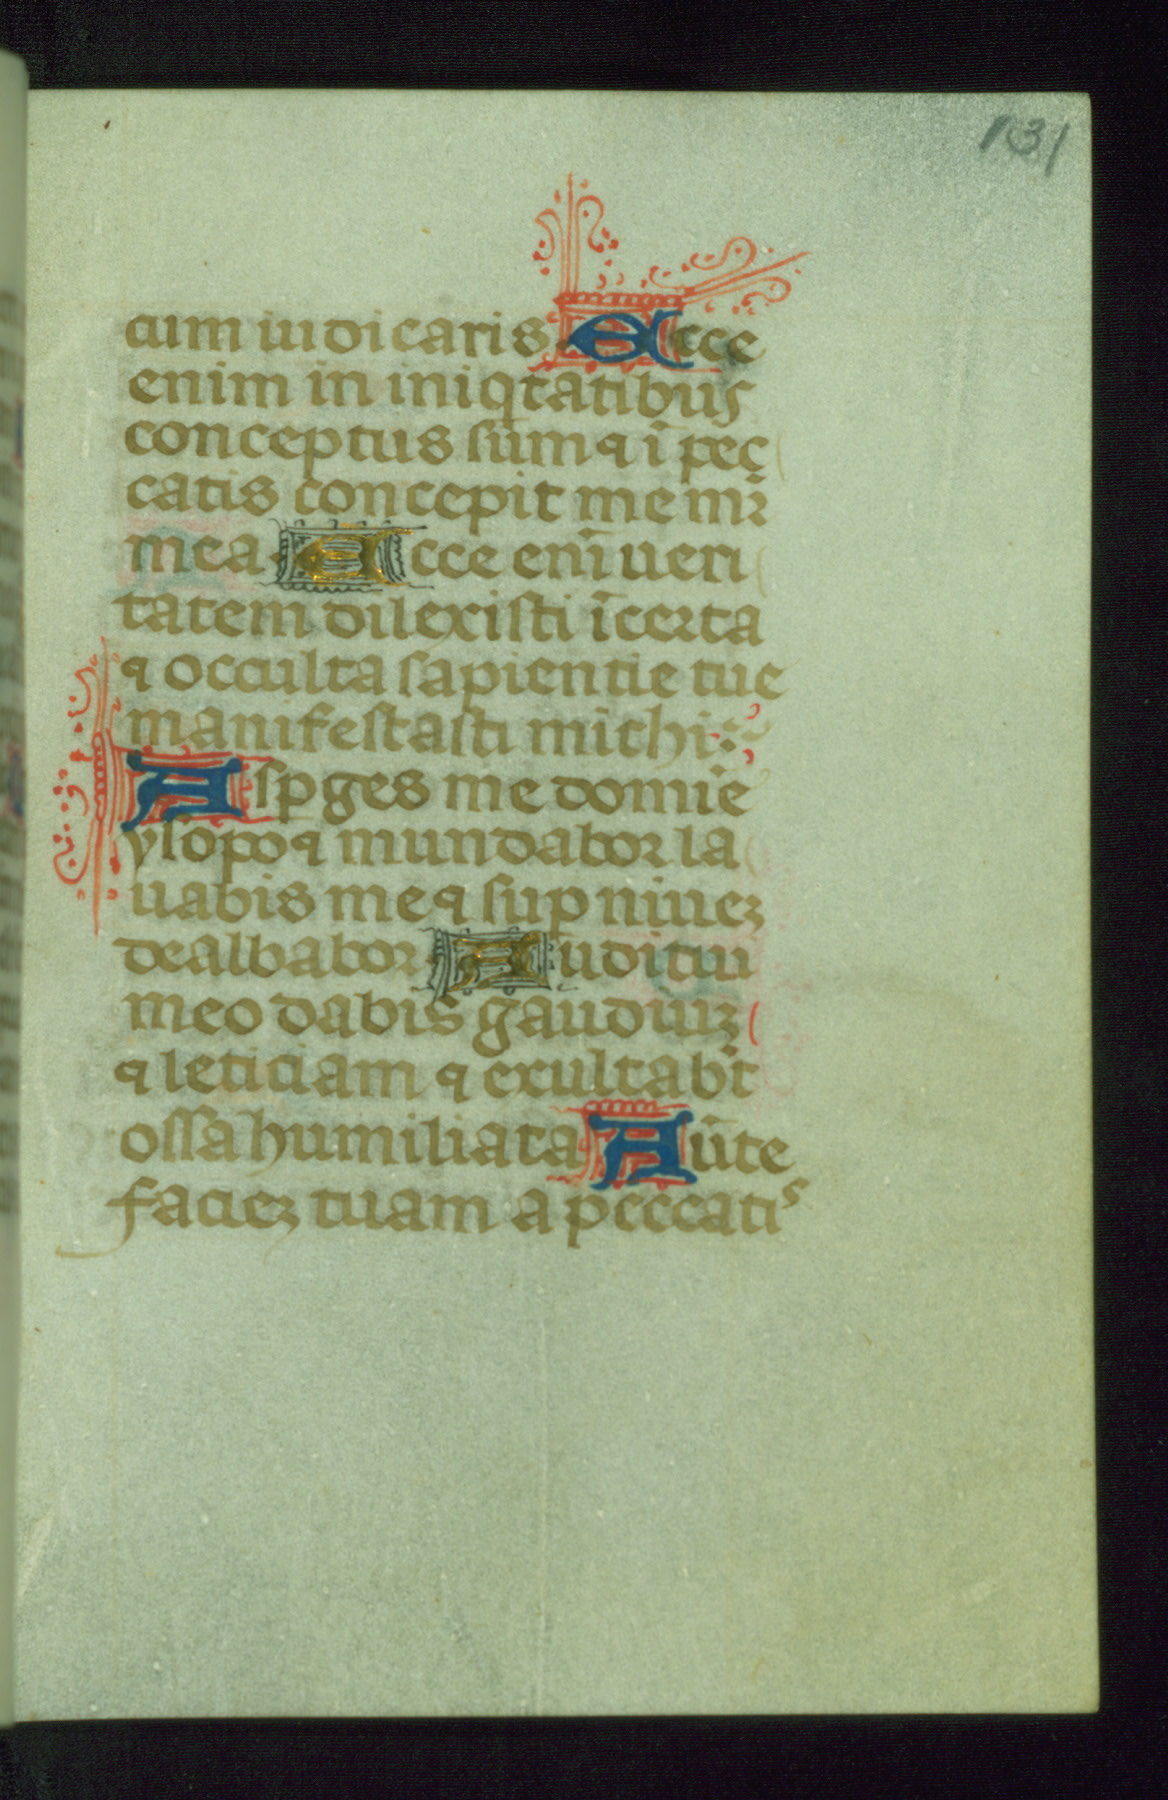 131
cum iudicaris Ecce
enim in iniqtatibus
conceptus sum ⁊ ī pec
catis concepit me mr̄
mea Ecce enī ueri
tatem dilexisti īcerta
⁊ occulta sapientie tue
manifestasti michi:
Aspges me domīe
ysopo ⁊ mundabor la
uabis me ⁊ sup niuez
dealbabor Auditui
meo dabis gaudiuz
⁊ leticiam ⁊ exultabt̄
ossa humiliata Aūte
faciez tuam a peccatis